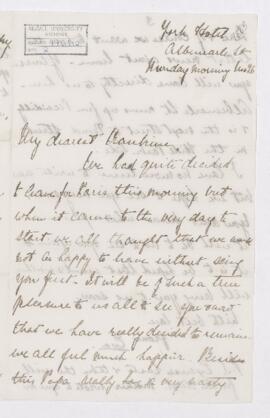 York Hotel
Albemarle St
Monday morning Nov 26
My dearest
We had quite decided
to leave for Paris this morning but
when it came to the very day to
start we all thought that we were
not so happy to leave without seeing
you first - It will be such a true
pleasure to us all to see you and
that we have really decided to remain
we all feel much happier. Besides
this Papa really has a very nasty